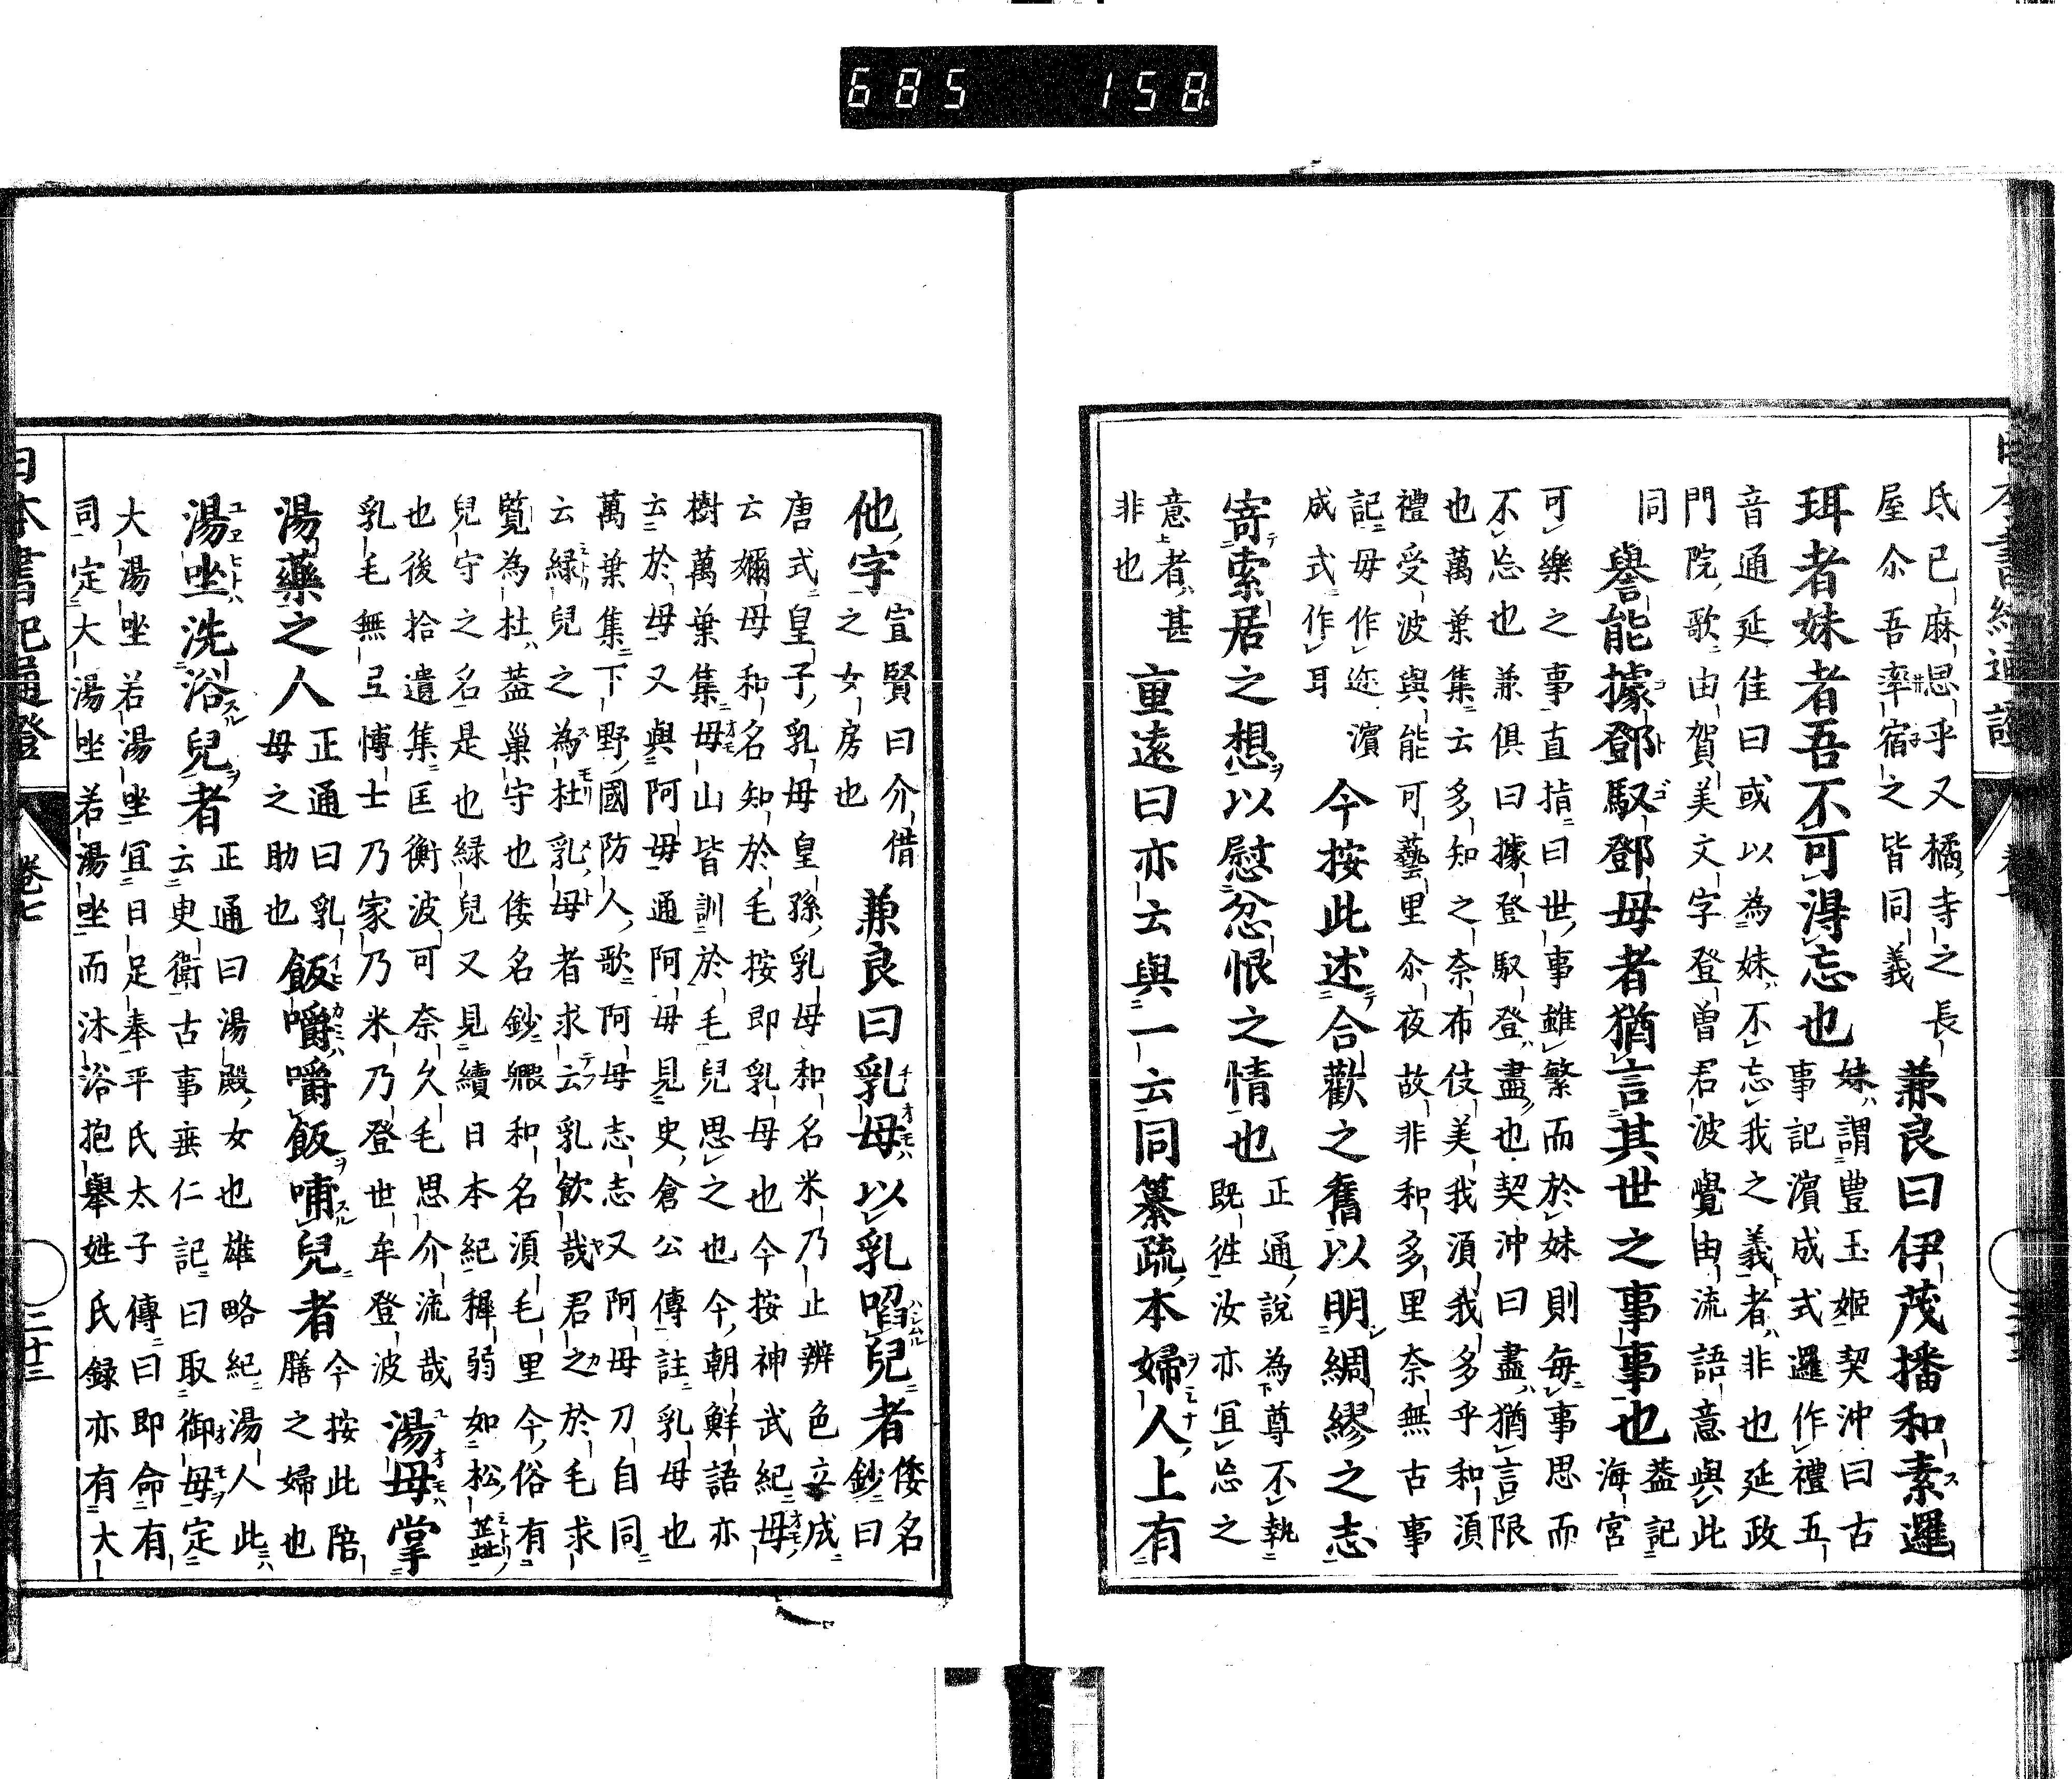 685 158
氐已麻思乎又橘寺之長
屋尒吾率宿之皆同義
兼良曰伊茂播和素邏
珥者妹者吾不可淂忘也
妹謂豊玉姬契沖曰古
事記濱成式邏作禮五
音通延佳曰或以為妹不忘我之義者非也延政
門院歌由賀美文字登曽君波覺由流語意與此
同
譽能據鄧馭鄧母者猶言其世之事事也
葢記
海宮
可樂之事直指曰世事雖繁而於妹則每事思而
不忘也兼俱曰據登馭登盡也契沖曰盡猶言限
也萬葉集云多知之奈布伎美我湏我多乎和湏
禮受波與能可藝里尒夜故非和多里奈無古事
記毋作作迩濱
成式作耳
今按此述合歡之舊以明綢繆之志
寄索居之想以慰忿恨之情也
正通說為尊不執
既徃汝亦冝忘之
意者甚
非也
重遠曰亦云與一云同纂疏本婦人上有
他字
宣賢曰介借
之女房也
兼良曰乳母以乳㗖兒者
倭名
鈔曰
唐式皇子乳母皇孫乳母和名米乃止辨色立成
云嬭母和名知於毛按即乳母也今按神武紀母
樹萬葉集母山皆訓於毛兒思之也今朝鮮語亦
云於母又與阿母通阿母見史倉公傳註乳母也
萬葉集下野國防人歌阿母志志又阿母刀自同
云緑兒之為杜乳母者求云乳飲哉君之於毛求
覧為杜葢巢守也倭名鈔㬉和名湏毛里今俗有
兒守之名是也緑兒又見續日本紀穉弱如松𦯧
也後拾遺集匡衡波可奈久毛思介流哉
乳毛無弖愽士乃家乃米乃登世牟登波
湯母掌
湯藥之人
正通曰乳
母之助也
飯嚼嚼飯哺兒者
今按此陪
膳之婦也
湯坐洗浴兒者
正通曰湯殿女也雄略紀湯人此
云臾衛古事垂仁記曰取御母定
大湯坐若湯坐冝日足奉平氏太子傳曰即命有
司定大湯坐若湯坐而沐浴抱舉姓氏録亦有大
日本書紀通證
卷七
三十三